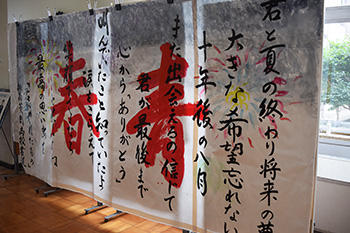 君と夏の終わり将来の夢
大きな希望忘れない
十年後の八月
また出会えるの信じて
君が最後まで
心からありがとう
叫んでいたこと知っていたよ
最高の
青春